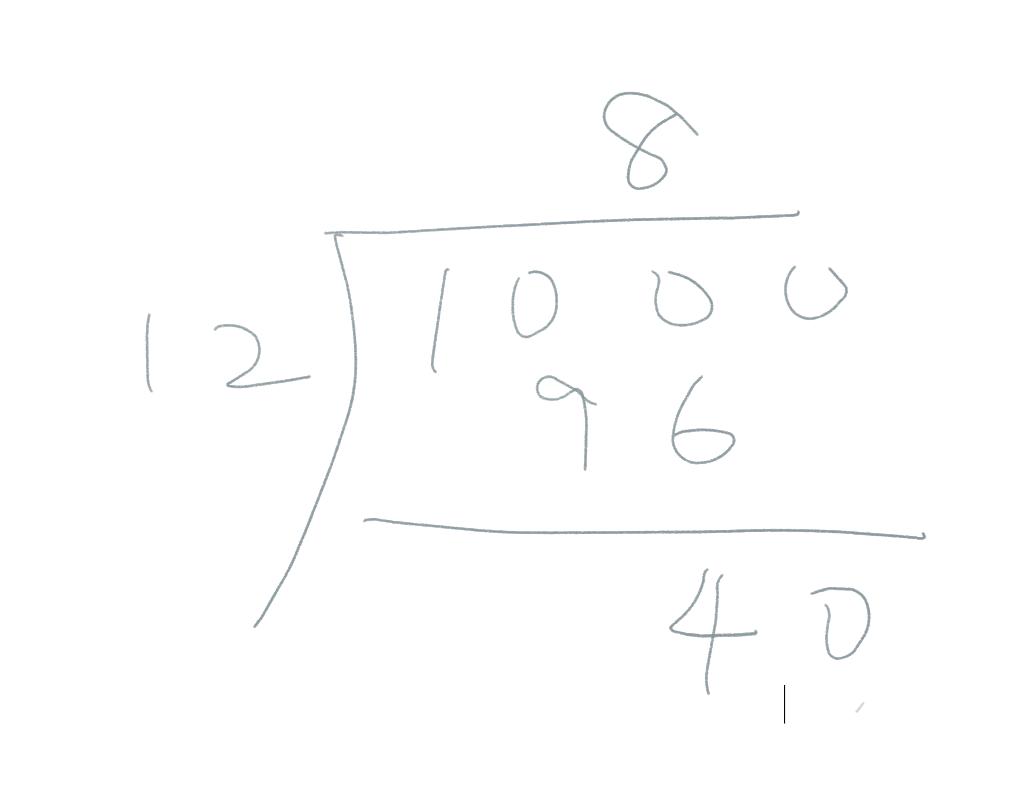 8
12 1000
96
40